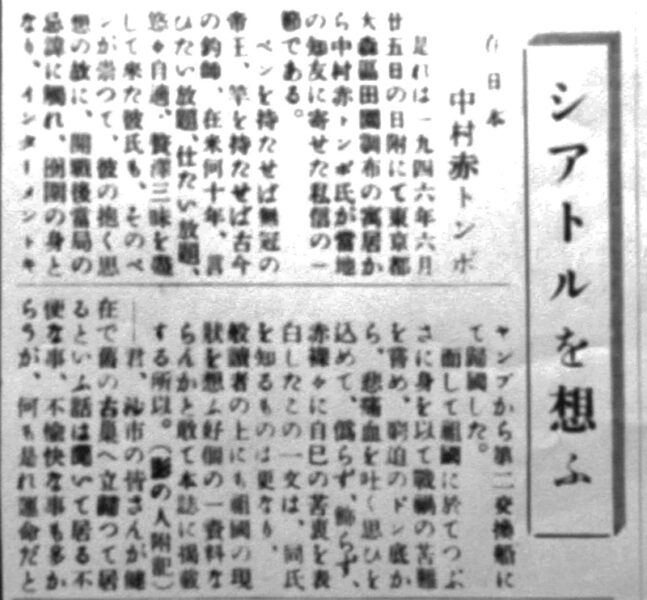 シアトルを想ふ
在日本
中村赤トンボ
是れは一九四六年六月
廿五日の日附にて東京都
大森區田園調布の寓居か
ら中村赤トンボ氏が當地
の知友に寄せた私信の一
節である。
ペンを持たせば無冠の
帝王、竿を持たせば古今
の釣師、在米何十年、言
ひたい放題、仕たい放題、
悠々自適、贅澤三昧を盡
して來た彼氏も、そのペ
ンが崇つて、彼の抱く思
想の故に、開戰後當局の
忌諱に觸れ、囹圄の身と
なり、インターメントキ
ャンプから第二交換船に
て歸國した。
面して祖國に於てつぶ
さに身を以て戰禍の苦難
を嘗め、窮迫のドン底か
ら、悲痛血を吐く思ひを
込めて、僞らず、飾らず、
赤裸々に自己の苦衷を表
白したこの一文は、同氏
を知るものは更なり、一
般讀者の上にも祖國の現
狀を想ふ好個の一資料な
らんかと敢て本誌に揭載
する所以。（影の人附記）
――君、沙市の皆さんが續
在で舊の古巢へ立歸つて居
るといふ話は聞いて居る不
便な事、不愉快な事も多か
らうが、何も是れ運命だと